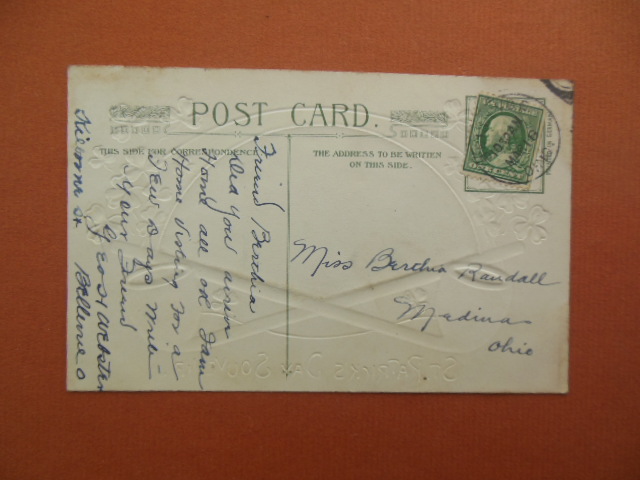 POST CARD.
THIS SIDE FOR CORRESPONDENCE
THE ADDRESS TO BE WRITTEN
ON THIS SIDE.
Friend Berthia
Did you arive
Home all ok I am
Home Visting for a
few Days
your Friend
Geo H Webster
Bellevue O
Miss Berthia Randall
Medina
Ohio
ST. PATRICK'S DAY SOUVENIR